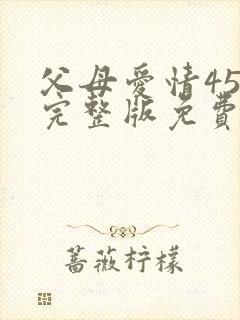 父母爱情45
完整版免費
蔷薇柠檬